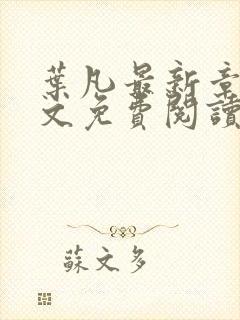 葉凡最新章
文免費閱讀
蘇文多